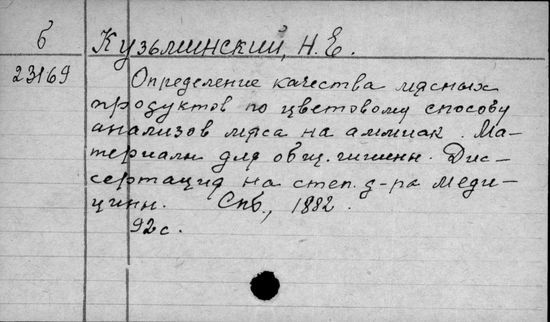 б
Кузьминский, Н. Е.
23169
Определение качества мясных
продуктов по цветовому способу
анализов мяса на аммиак. Ма-
териалы для общ. гигиены. Дис-
сертация на степ. д-ра меди-
цины. Спб., 1882.
92 с.